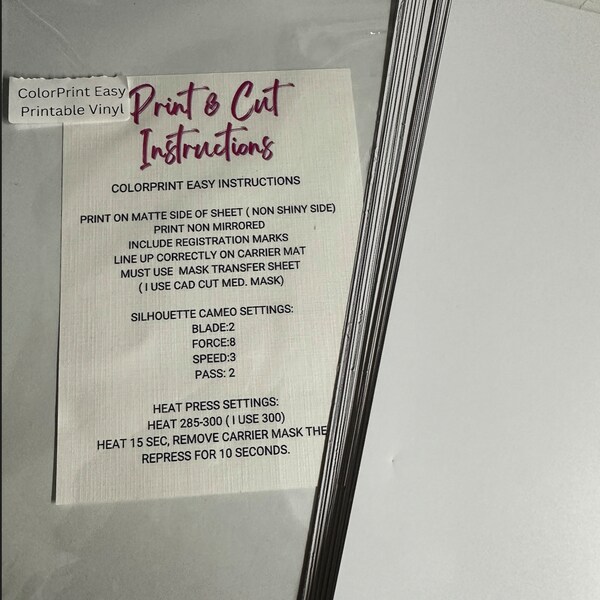 ColorPrint Easy
Printable Vinyl
Print & Cut
Instructions
COLORPRINT EASY INSTRUCTIONS
PRINT ON MATTE SIDE OF SHEET ( NON SHINY SIDE)
PRINT NON MIRRORED
INCLUDE REGISTRATION MARKS
LINE UP CORRECTLY ON CARRIER MAT
MUST USE MASK TRANSFER SHEET
( I USE CAD CUT MED. MASK)
SILHOUETTE CAMEO SETTINGS:
BLADE:2
FORCE:8
SPEED:3
PASS: 2
HEAT PRESS SETTINGS:
HEAT 285-300 ( I USE 300)
HEAT 15 SEC, REMOVE CARRIER MASK THE
REPRESS FOR 10 SECONDS.